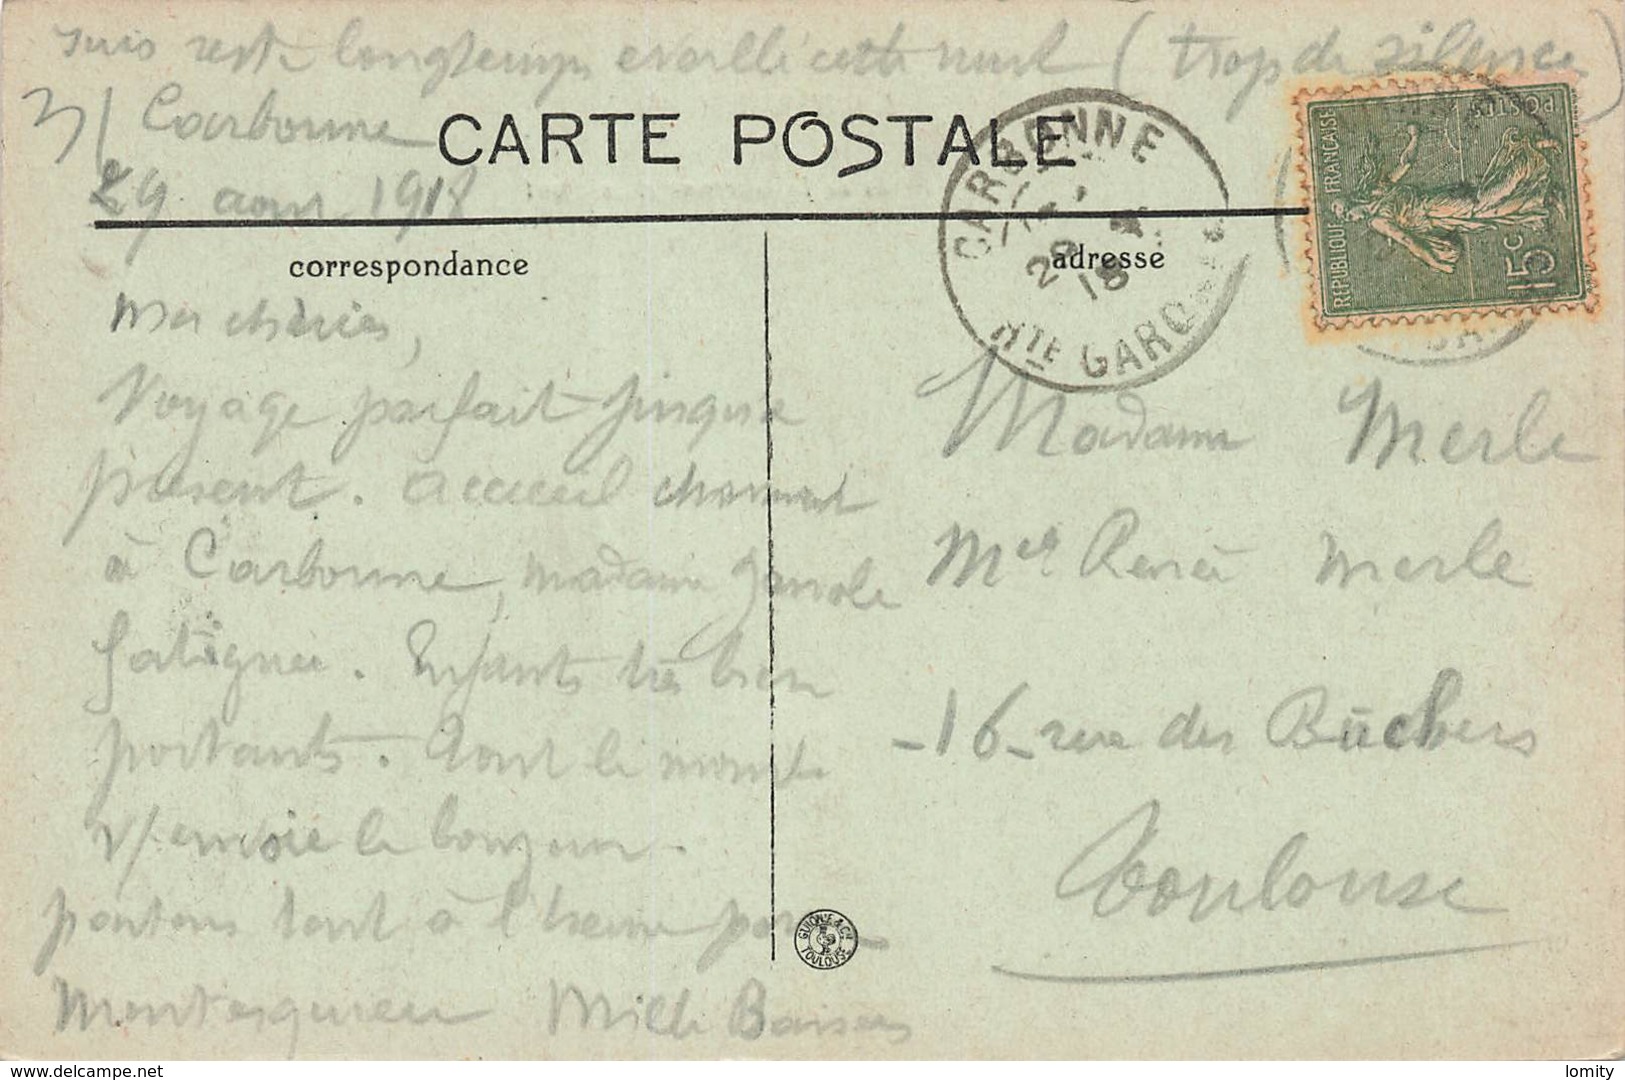 suis resté longtemps eveillé cette nuit (trop de silence)
3/ Carbonne
29 aout 1918
CARTE POSTALE
correspondance
adresse
CARBONNE
29
18
HTE GARONNE
REPUBLIQUE FRANCAISE
POSTES
15c
Mes chéries,
Voyage parfait jusqu'a
présent. Acceuil charmant
à Carbonne, Madame
fatiguée. Enfants très bien
portants. Tout le monde
v/ envoie le bonjour.
partons tout à l'heure pour
Montesquieu Mille Baisers
Madame Merle
Melle Renée Merle
-16- rue des Büchers
Toulouse
GUIONIE & Cie
TOULOUSE
delcampe.net
lomity